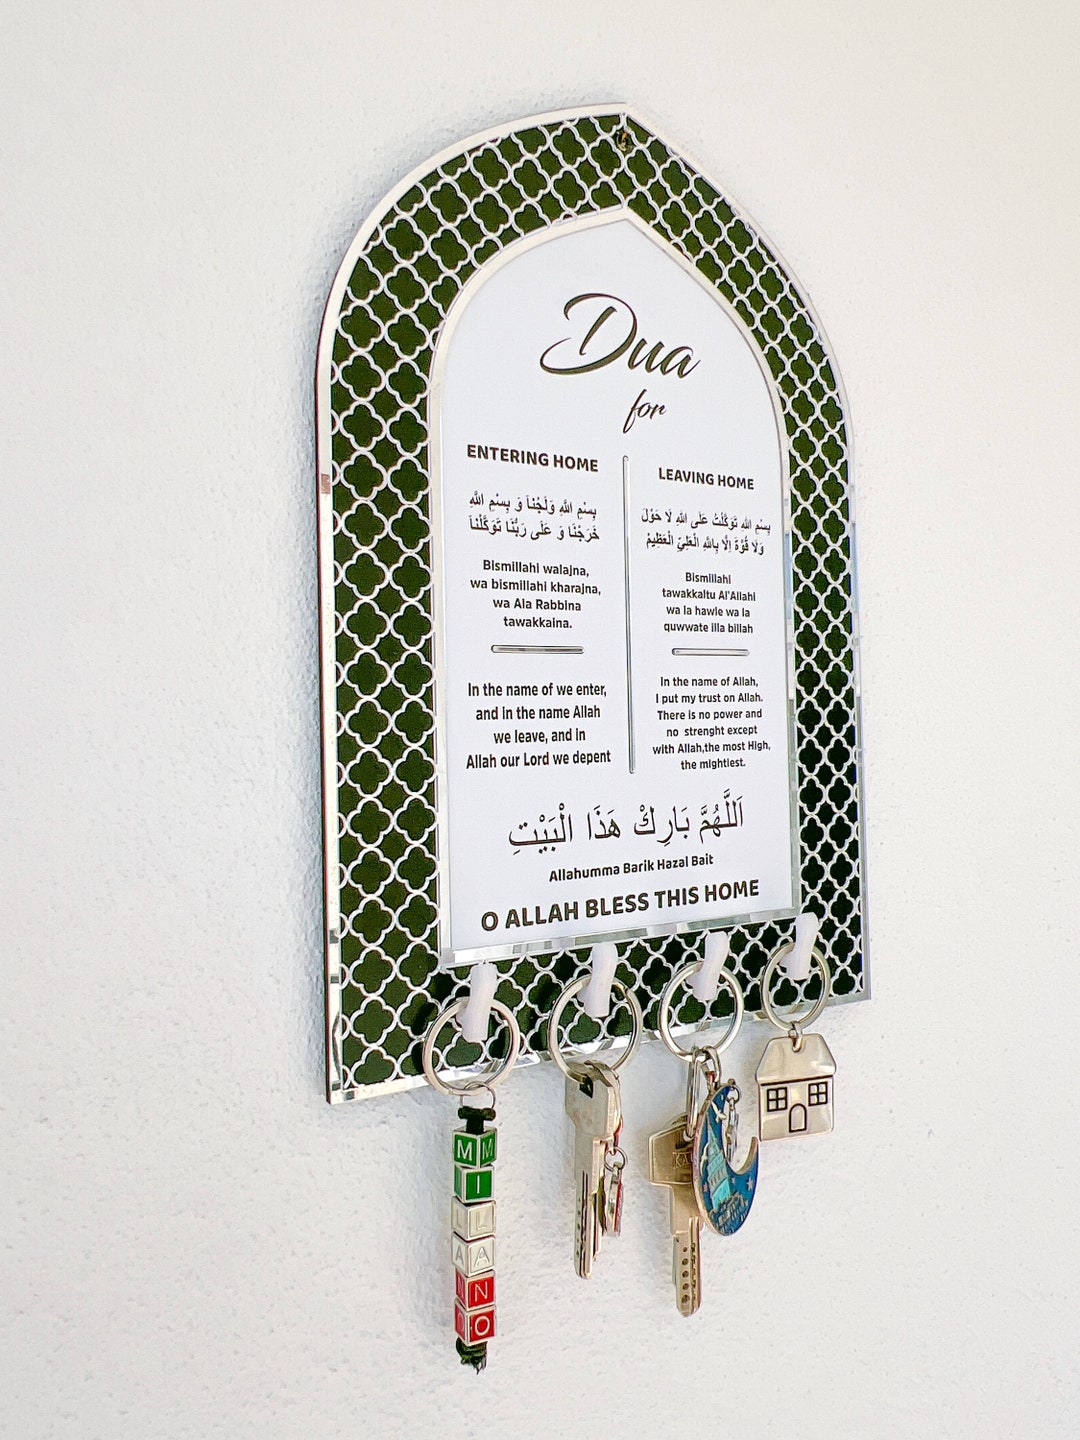 Dua
for
ENTERING HOME
بِسْمِ اللَّهِ وَلَجْنَا وَ بِسْمِ اللَّهِ
خَرَجْنَا وَ عَلَى رَبُّنَا تَوَكَّلْنَا
Bismillahi walajna,
wa bismillahi kharajna,
wa Ala Rabbina
tawakkaina.
In the name of we enter,
and in the name Allah
we leave, and in
Allah our Lord we depent
LEAVING HOME
بِسْمِ اللهِ تَوَكَّلْتُ عَلَى اللهِ لَا حَوْلَ
وَلَا قُوَّةَ اِلَّا بِاللهِ الْعَلِيِّ الْعَظِيْمُ
Bismillahi
tawakkaltu Al'Allahi
wa la hawle wa la
quwwate illa billah
In the name of Allah,
I put my trust on Allah.
There is no power and
no strenght except
with Allah,the most High,
the mightiest.
اَللَّهُمَّ بَارِكْ هَذَا الْبَيْتِ
Allahumma Barik Hazal Bait
O ALLAH BLESS THIS HOME
M
I
L
A
N
O